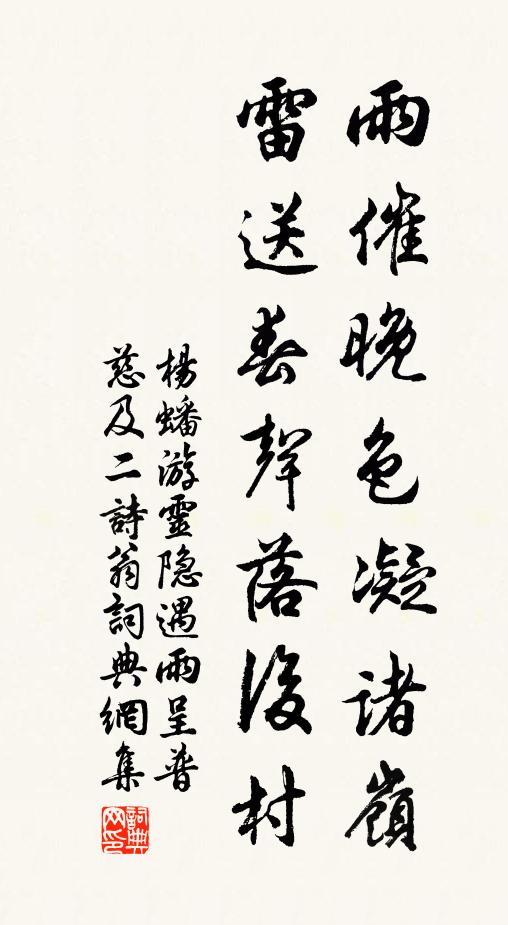 雨催晚色凝諸嶺
雷送春聲落後村
楊蟠游靈隐遇雨呈普
慈及二詩翁詞典網集
詞典
网印